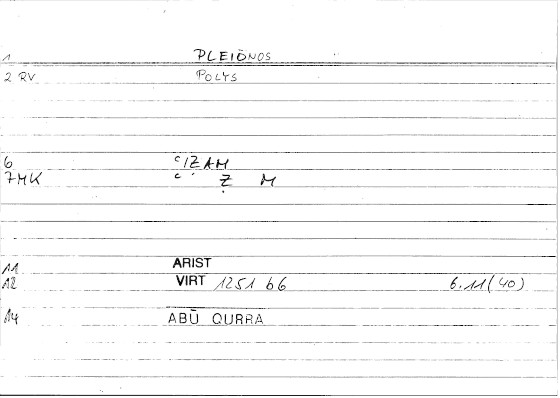 1 PLEIŌNOS
2 RV POLYS
6 ʿIẒAM
7MK ʿ Ẓ M
11 ARIST
12 VIRT 1251 b6 6.11(40)
14 ABŪ QURRA